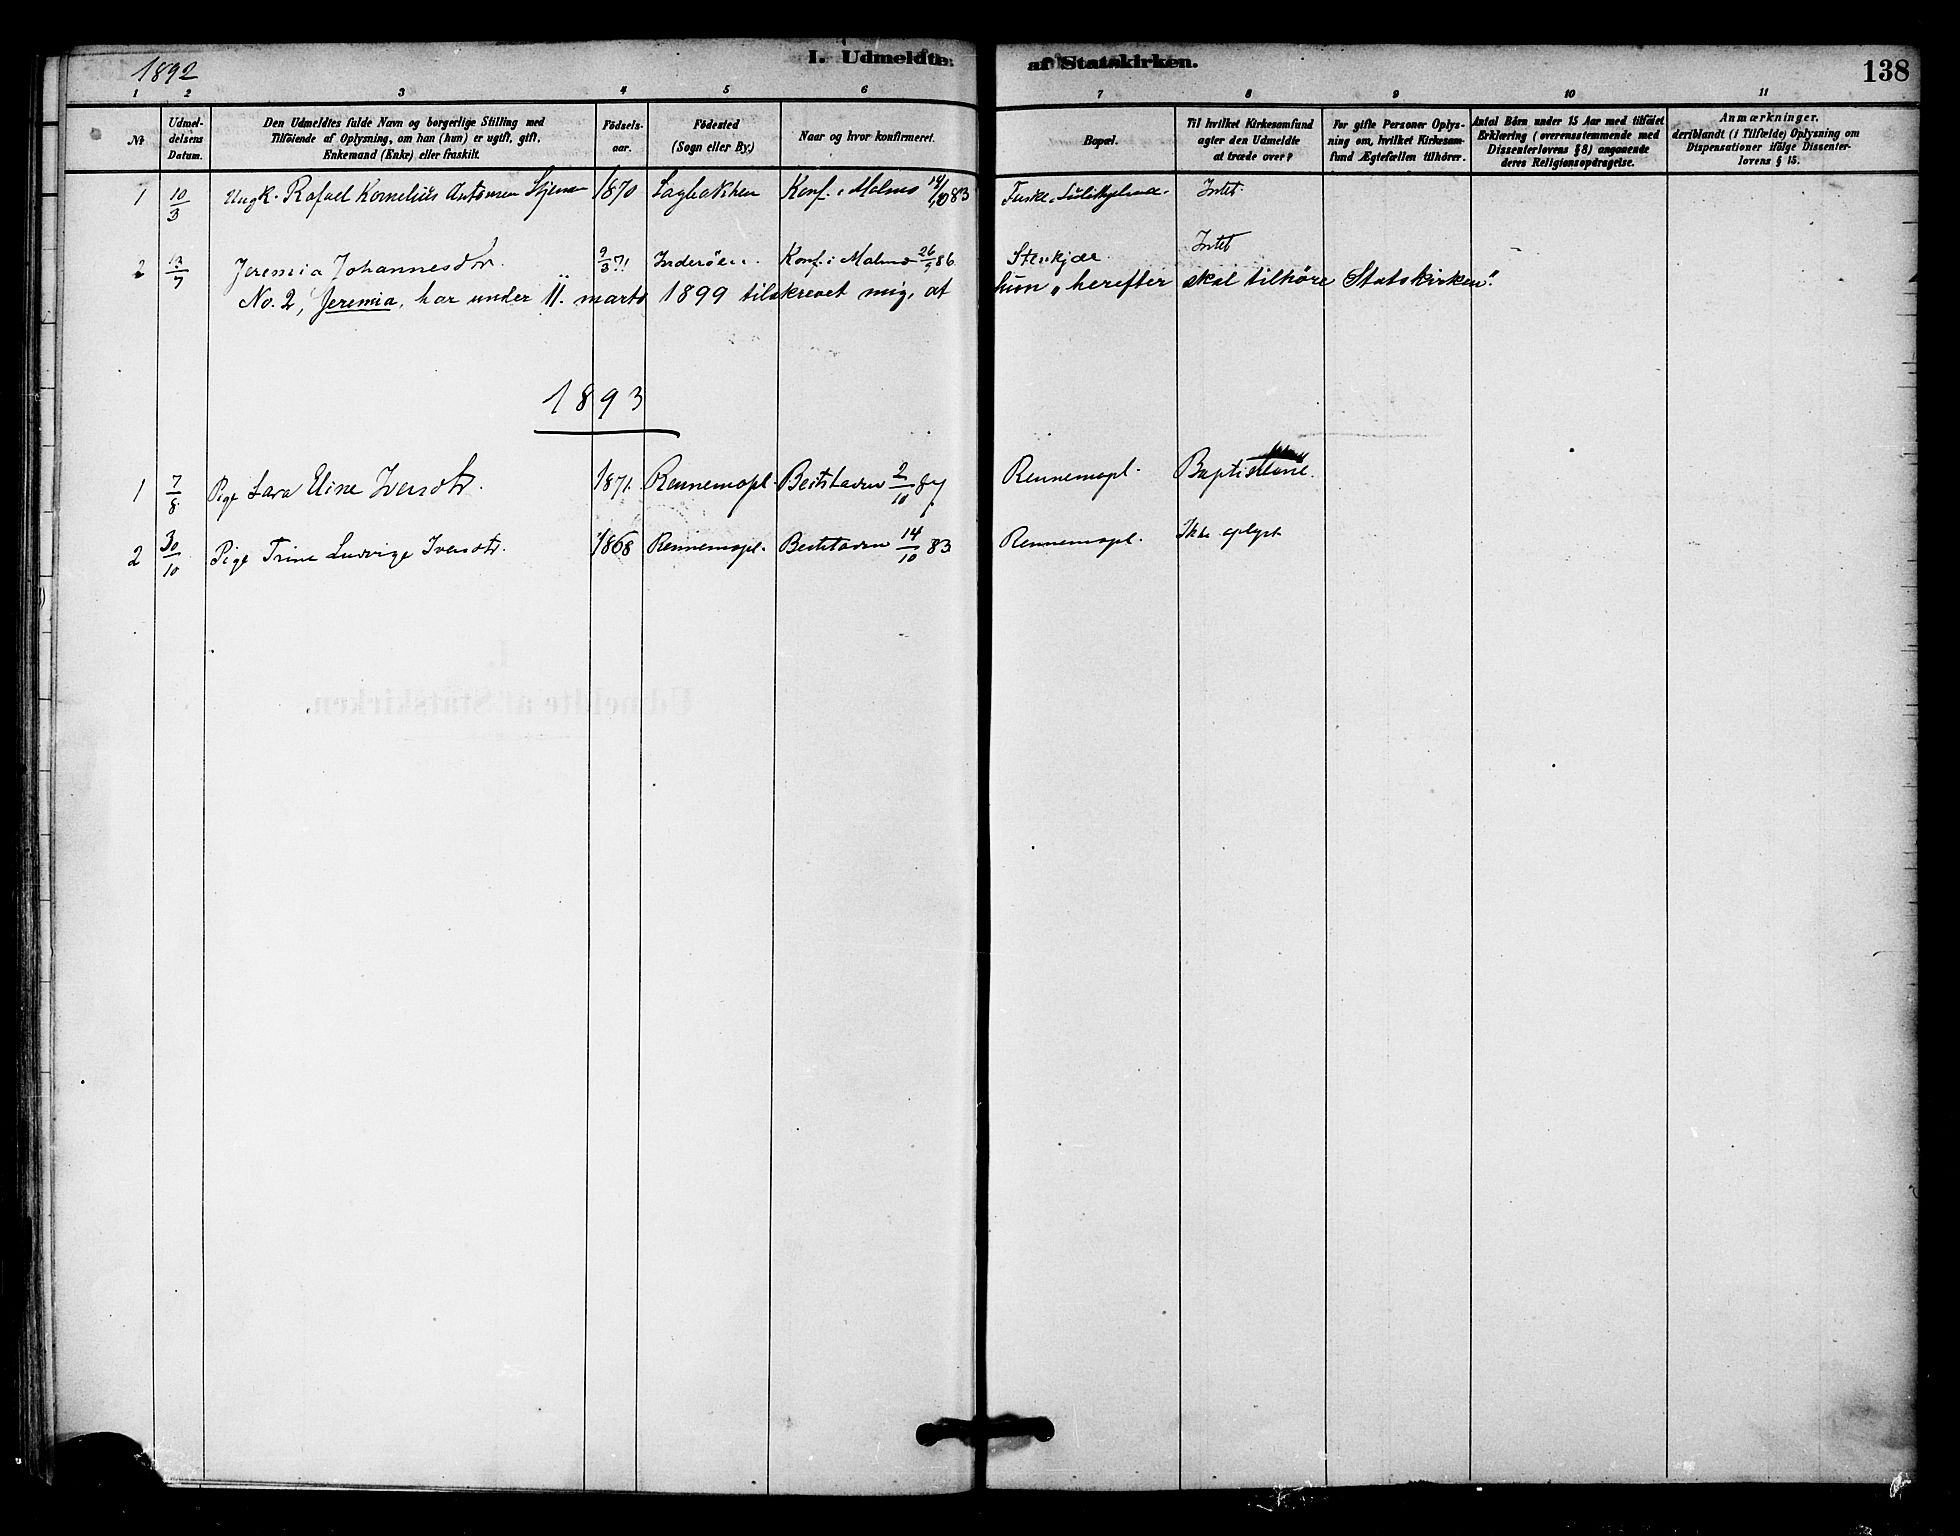 1892
I. Udmeldte
af Statskirken.
138
1 2 3 4 5 6 7 8 9 10 11
No
Udmel-
delsens
Datum.
Den Udmeldtes fulde Navn og borgerlige Stilling med
Tilföiende af Oplysning, om han (hun) er ugift, gift,
Enkemand (Enke) eller fraskilt.
Födsels-
aar.
Födested
(Sogn eller By.)
Naar og hvor konfirmeret.
Bopæl.
Til hvilket Kirkesamfund
agter den Udmeldte
at træde over?
For gifte Personer Oplys-
ning om, hvilket Kirkesam-
fund Ægtefællen tilhörer.
Antal Börn under 15 Aar med tilföiet
Erklæring (overensstemmende med
Dissenterlovens § 8) angaaende
deres Religionsopdragelse.
Anmærkninger.
deriblandt (i Tilfælde) Oplysning om
Dispensationer ifölge Dissenter-
lovens § 15.
1 10/3 Ungk. Rafael Kornelius Antonsen 1870 Konf. i Malmo 14/10 83 Intet.
2 13/7 Jeremia Johannesdtr. 9/3 71 Inderöen. Konf. i Malmo 26/9 86 Stenkjær. Intet
No. 2, Jeremia, har under 11. marts 1899 tilskrevet mig, at hun „herefter skal tilhöre Statskirken".
1893
1 7/8 Pige Lava Eline Iversdtr. 1871. Rennemspl. Beitstaden 2/10 87 Rennemspl. Baptisterne.
2 30/10 Pige Trine Ludvige Iversdtr. 1868 Rennemspl. Beitstaden 14/10 83 Rennemspl. Ikke oplyst